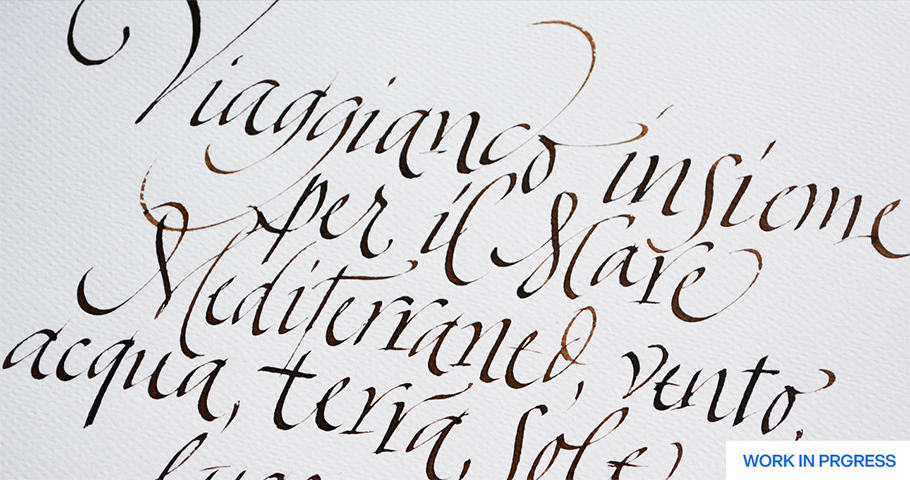 Viaggiando insieme
per il Mare
Mediterraneo, vento,
acqua, terra, sole
WORK IN PRGRESS